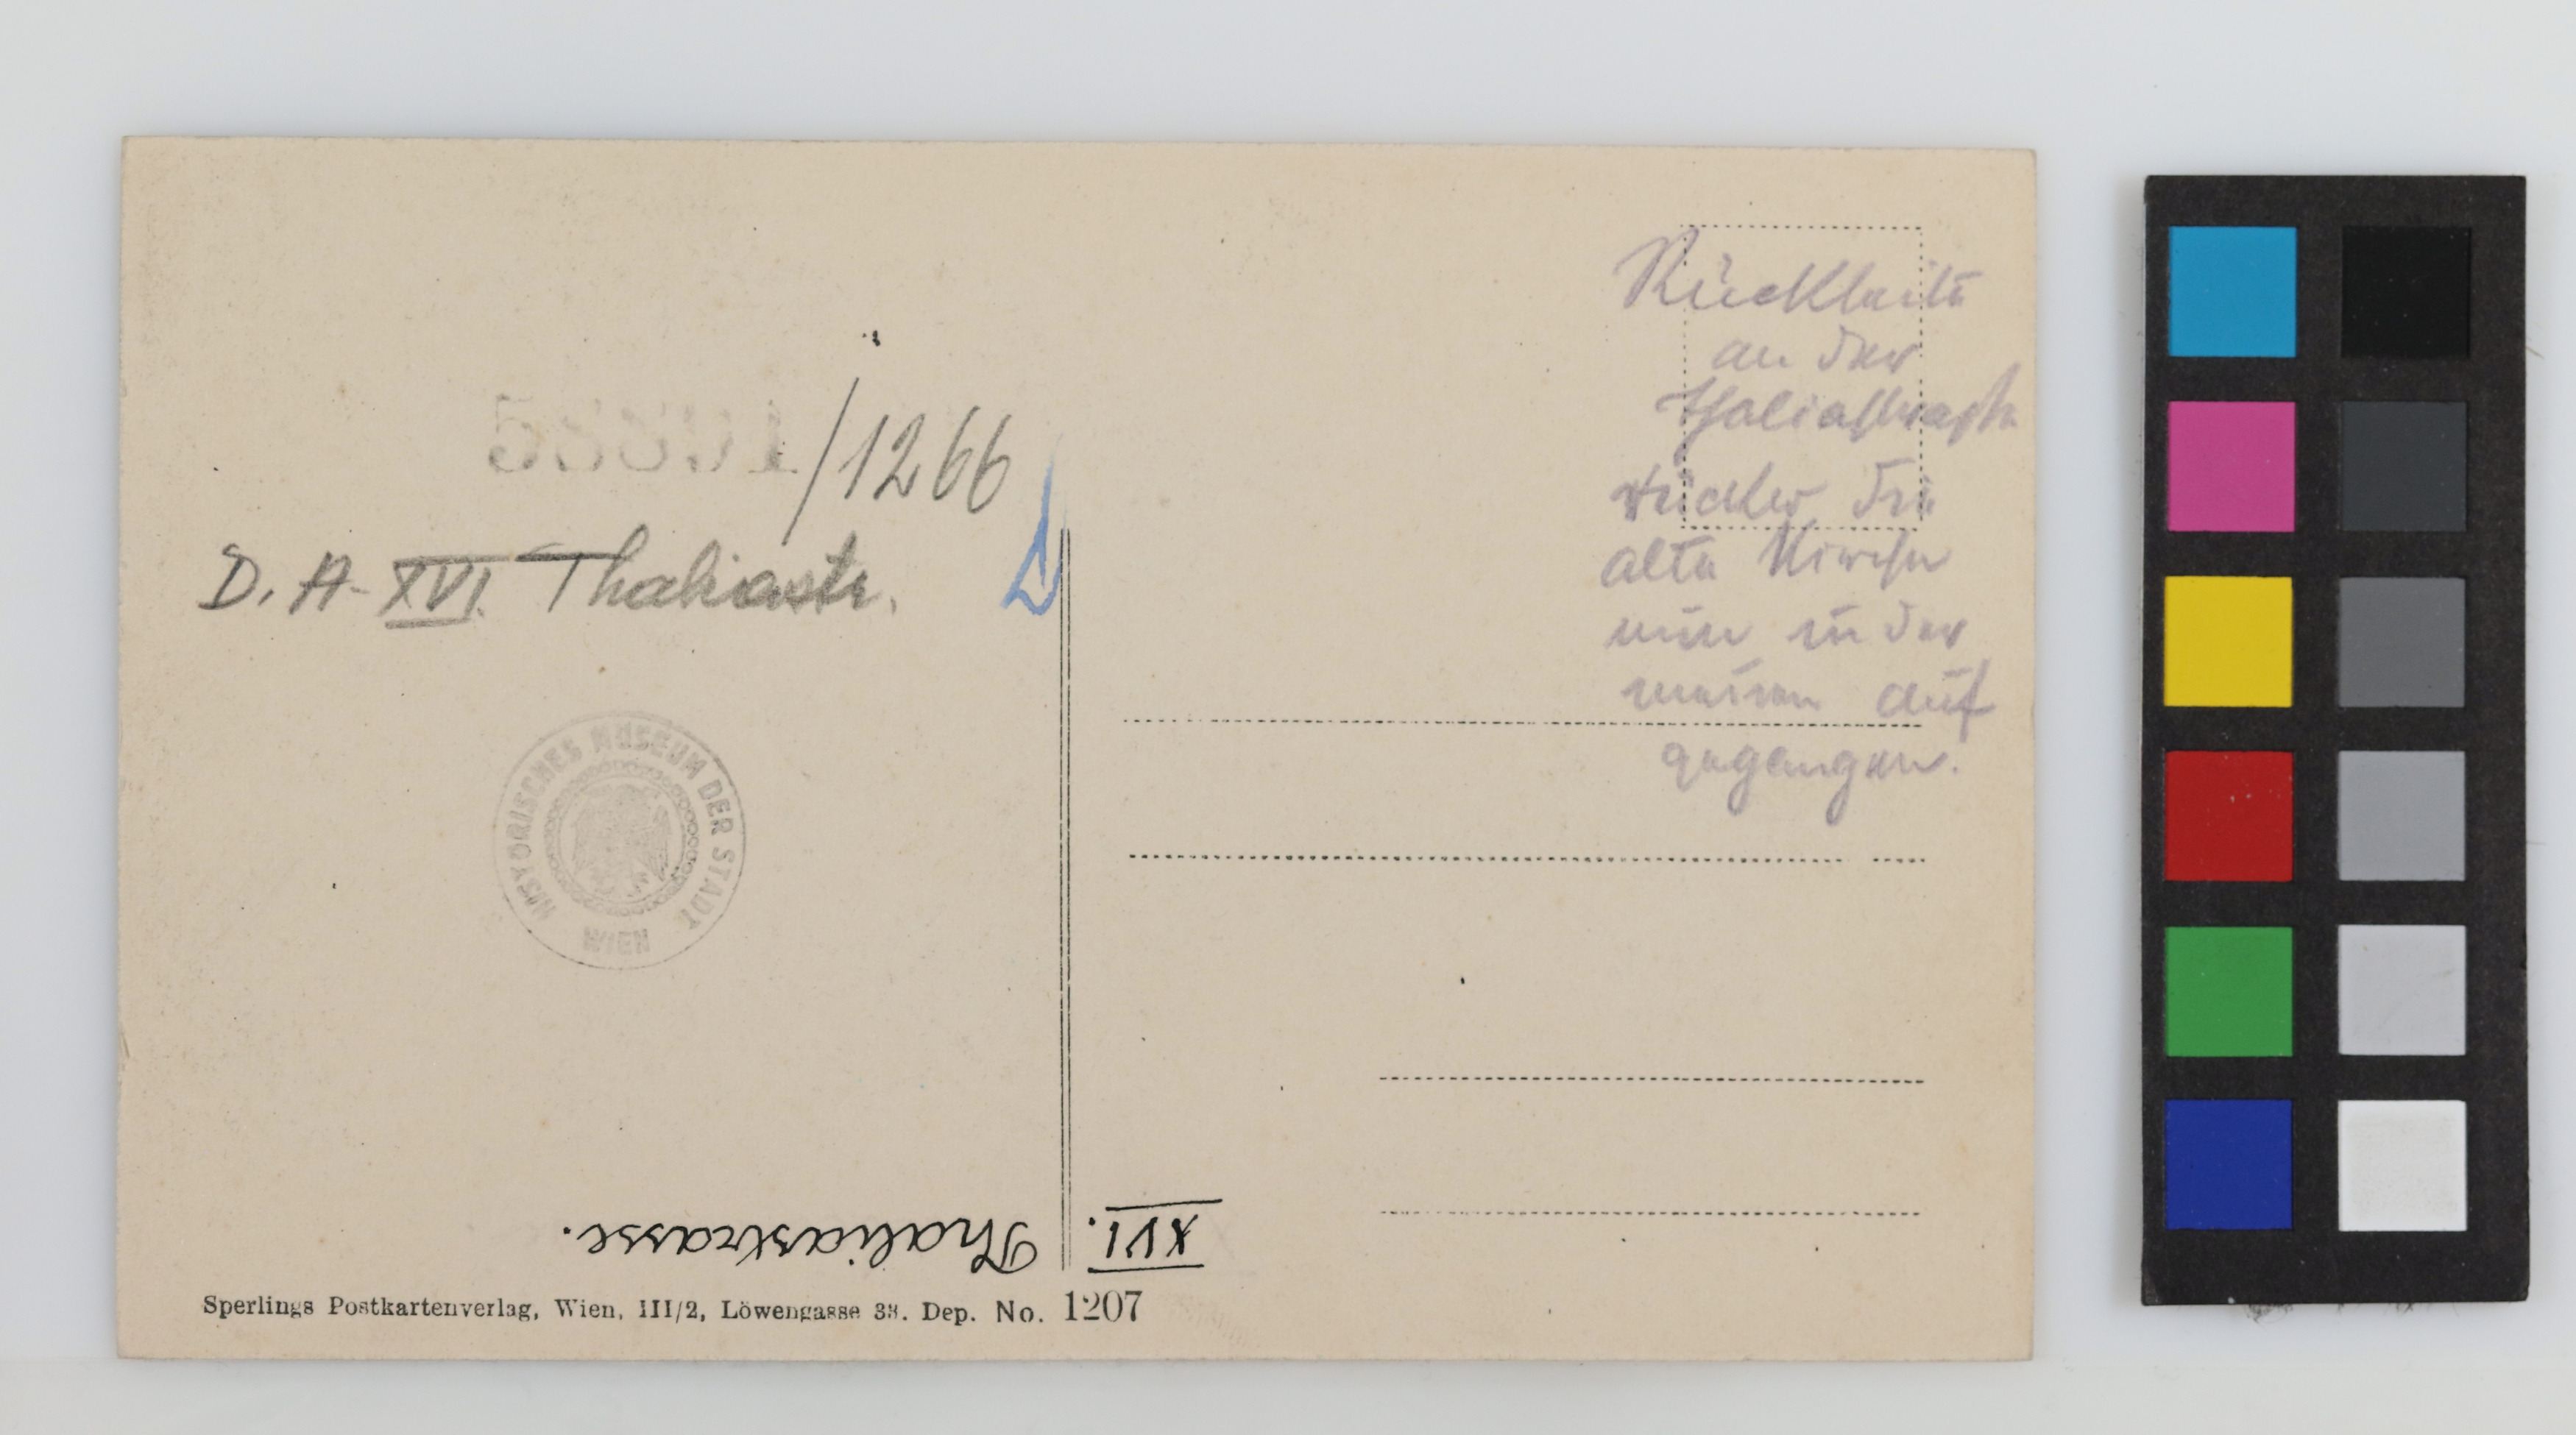 /1266
D. A- XVI. Thaliastr.
HISTORISCHES MUSEUM DER STADT
WIEN
Rückseite
an der
Thaliastrasse
die
alte Kirche
nun in der
neuen auf
gegangen.
XVI. Thaliastrasse.
Sperlings Postkartenverlag, Wien, III/2, Löwengasse 38. Dep. No. 1207